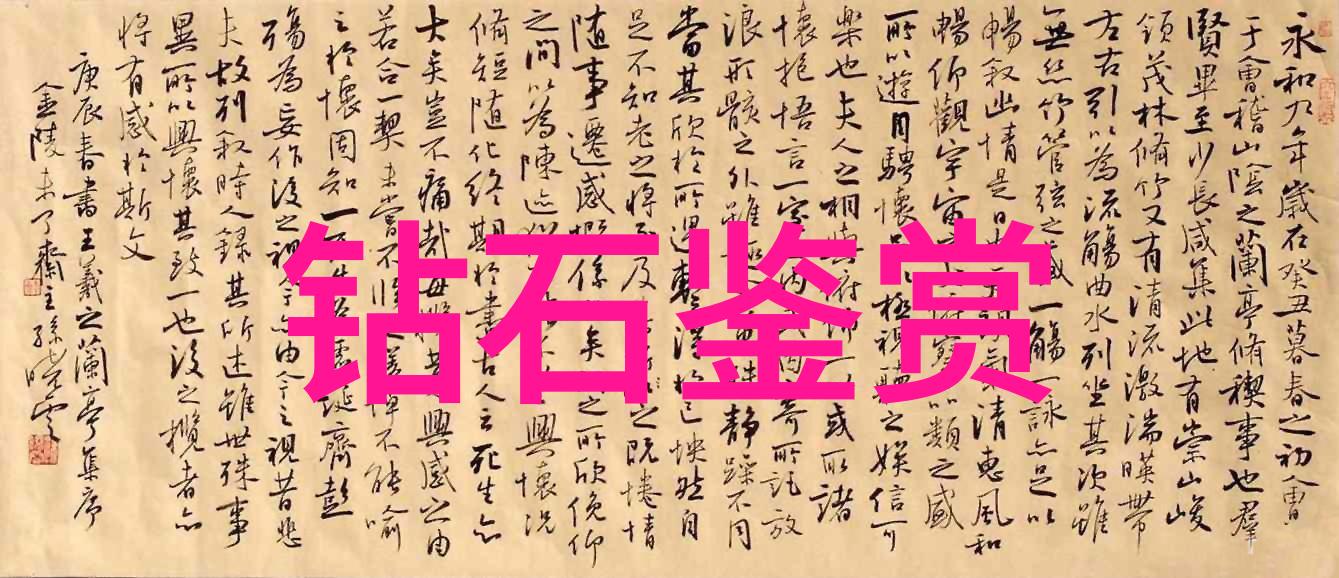 钻石鉴赏
永和九年歲在癸丑暮春之初會
于會稽山陰之蘭亭脩稧事也羣
賢畢至少長咸集此地有崇山峻
領茂林脩竹又有清流激湍暎帶
左右引以為流觴曲水列坐其次雖
無絲竹管弦之盛一觴一詠亦足以
暢敘幽情是日也天朗氣清惠風和
暢仰觀宇宙之大俯察品類之盛
所以遊目騁懷足以極視聽之娛信可
樂也夫人之相與俯仰一世或取諸
懷抱悟言一室之內或因寄所託放
浪形骸之外雖趣舍萬殊靜躁不同
當其欣於所遇暫得於己怏然自
足不知老之將至及其所之既惓情
隨事遷感慨係之矣向之所欣俛仰
之間以為陳迹猶不以之興懷況
脩短隨化終期於盡古人云死生亦
大矣豈不痛哉每攬昔人興感之由
若合一契未嘗不臨文嗟悼不能喻
之於懷固知一死生為虛誕齊彭
殤為妄作後之視今亦由今之視昔悲
夫故列敘時人錄其所述雖世殊事
異所以興懷其致一也後之攬者亦
將有感於斯文
庚辰春書王羲之蘭亭集序
金陵未了齋主孫曉雲